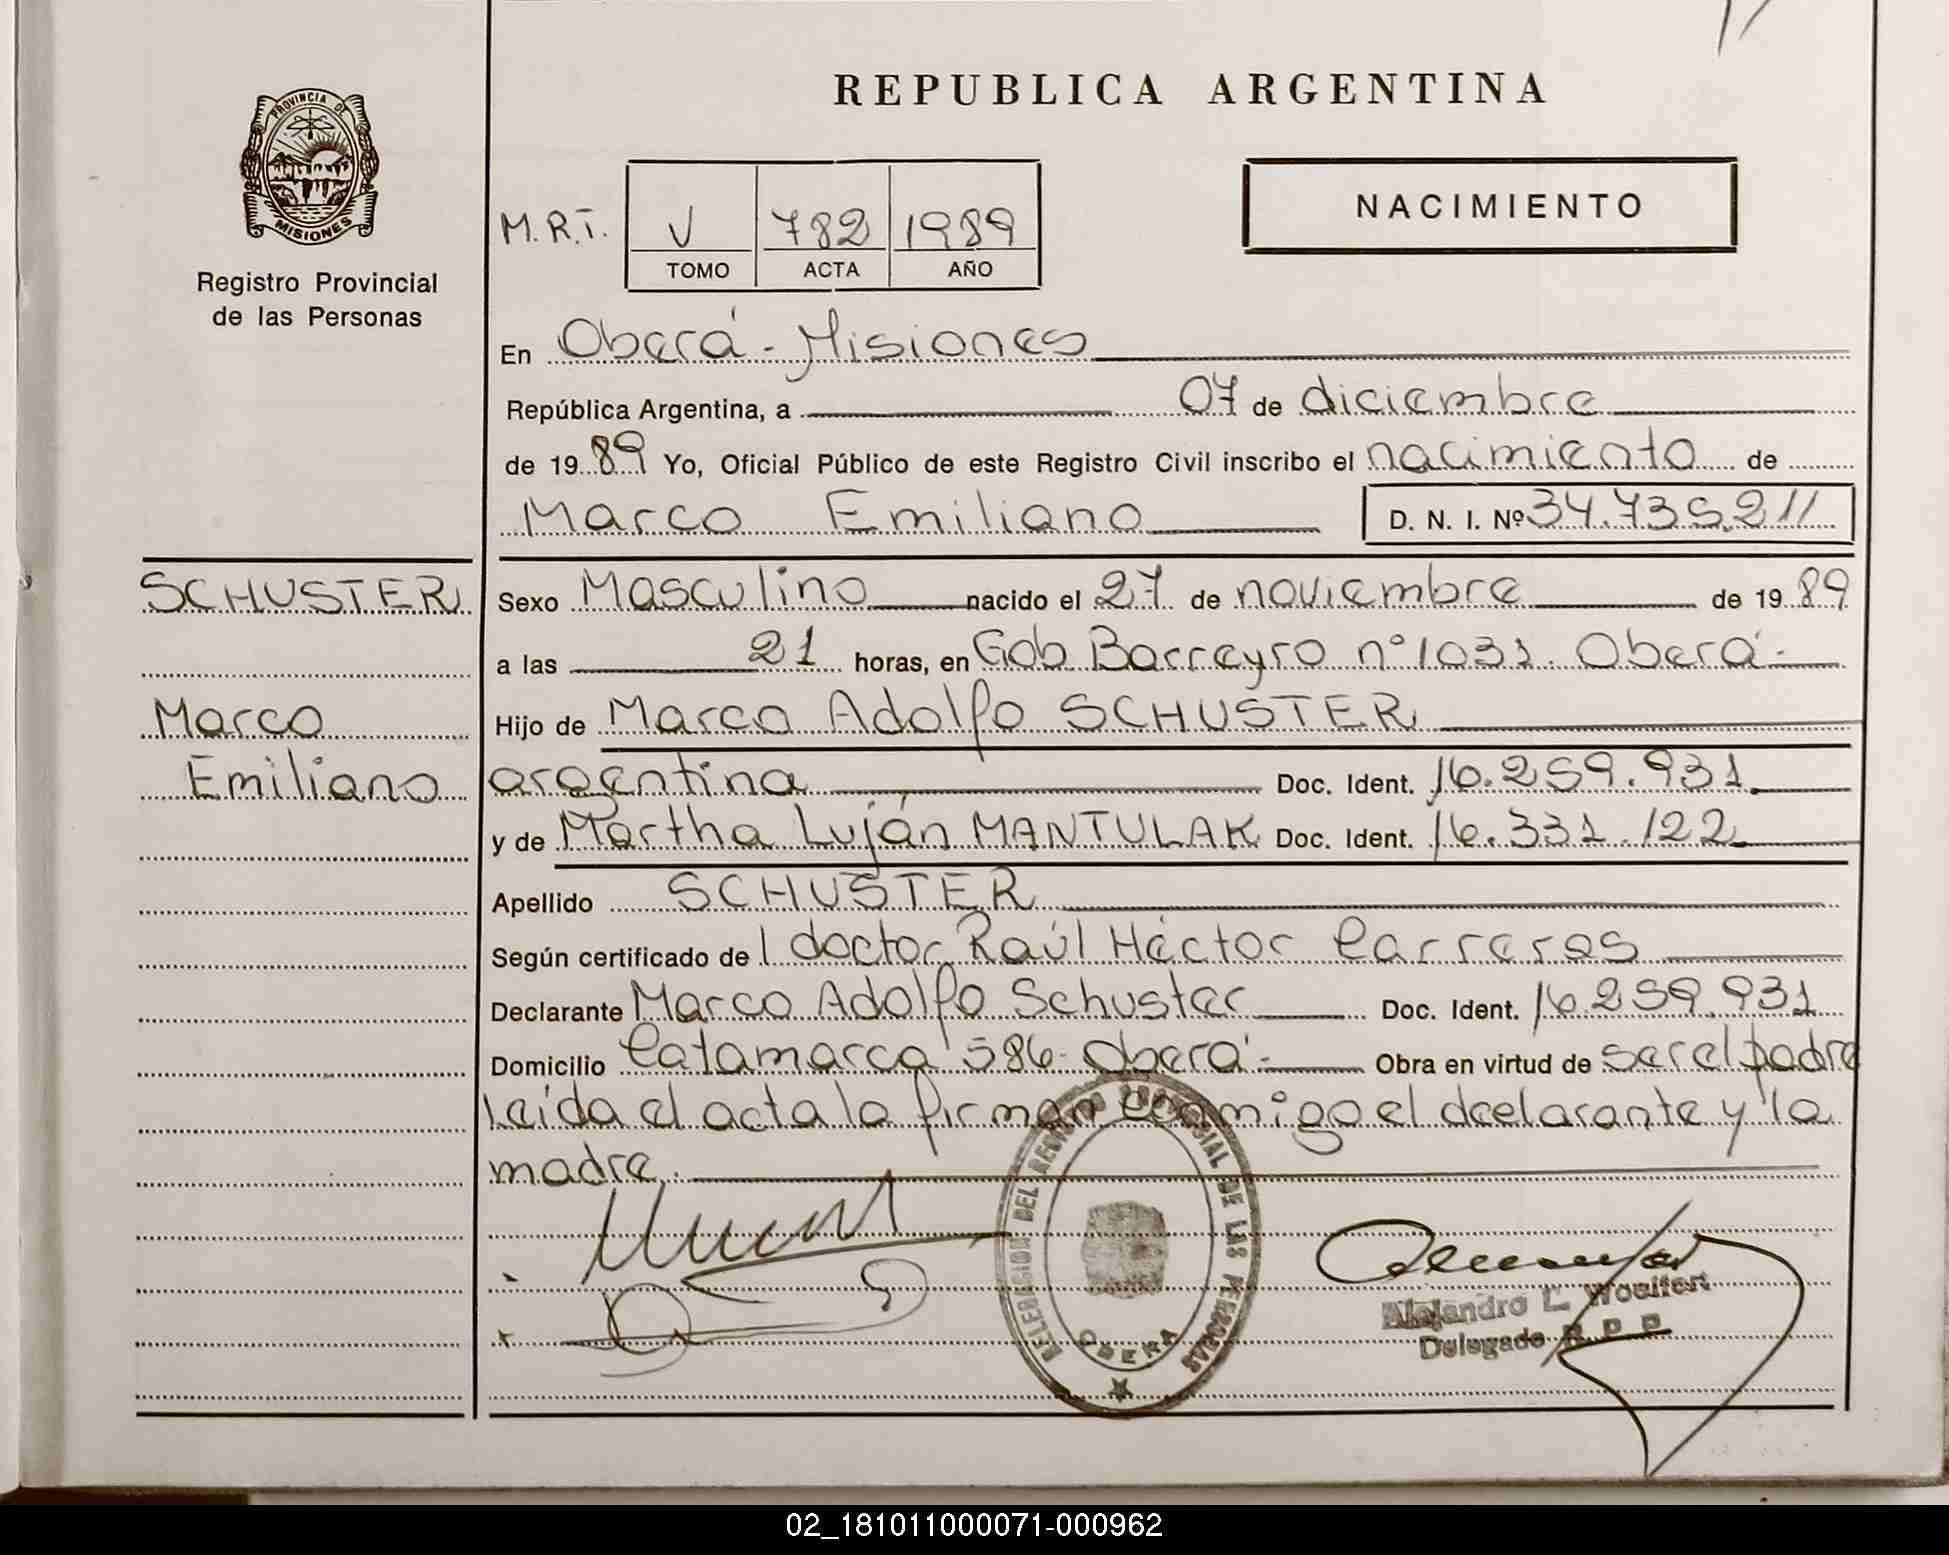 REPUBLICA ARGENTINA
PROVINCIA DE
MISIONES
Registro Provincial
de las Personas
M.R.T.
V 782 1989
TOMO ACTA AÑO
NACIMIENTO
En Oberá - Misiones
República Argentina, a 07 de diciembre
de 1989 Yo, Oficial Público de este Registro Civil inscribo el nacimiento de
Marco Emiliano D. N. I. Nº 34.735.211
SCHUSTER
Marco
Emiliano
Sexo Masculino nacido el 27 de noviembre de 1989
a las 21 horas, en Gob Barreyro nº 1031. Oberá-
Hijo de Marco Adolfo SCHUSTER
argentina Doc. Ident. 16.259.931
y de Martha Luján MANTULAK Doc. Ident. 16.331.122
Apellido SCHUSTER
Según certificado del doctor Raúl Héctor Carreras
Declarante Marco Adolfo Schuster Doc. Ident. 16.259.931
Domicilio Catamarca 586- Oberá- Obra en virtud de ser el padre
Leída el acta la firman conmigo el declarante y la
madre.
DELEGACION DEL REGISTRO PROVINCIAL DE LAS PERSONAS
OBERA
Alejandro L. Woelfert
Delegado R P P
02_181011000071-000962